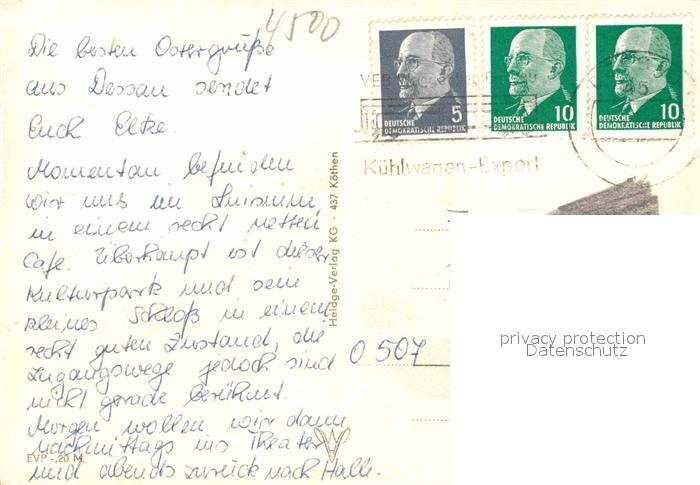 4500
Die besten Ostergrüße
aus Dessau sendet
Euch Elke.
Momentan befinden
wir uns im
in einem recht netten
Cafe. Überhaupt ist dieser
Kulturpark und sein
kleines Schloß in einem
recht guten Zustand, die
Zugangswege jedoch sind
nicht gerade berühmt.
Morgen wollen wir dann
nachmittags ins Theater
und abends zurück nach Halle.
EVP -,20 M
Heldge-Verlag KG · 437 Köthen
5
DEUTSCHE
DEMOKRATISCHE REPUBLIK
10
DEUTSCHE
DEMOKRATISCHE REPUBLIK
10
DEUTSCHE
DEMOKRATISCHE REPUBLIK
VEB
Kühlwagen-Export
O 507
privacy protection
Datenschutz